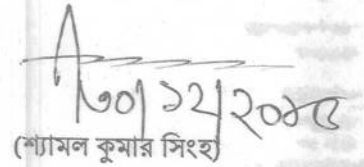 ৩০|১২|২০১৫
(শ্যামল কুমার সিংহ)